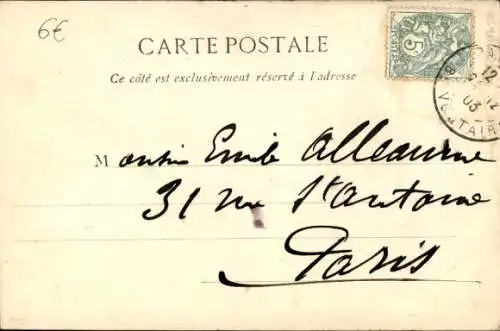 6€
CARTE POSTALE
Ce côté est exclusivement réservé à l'adresse
5
POSTES
12
03
Monsieur Emile Alleaume
31 rue St Antoine
Paris